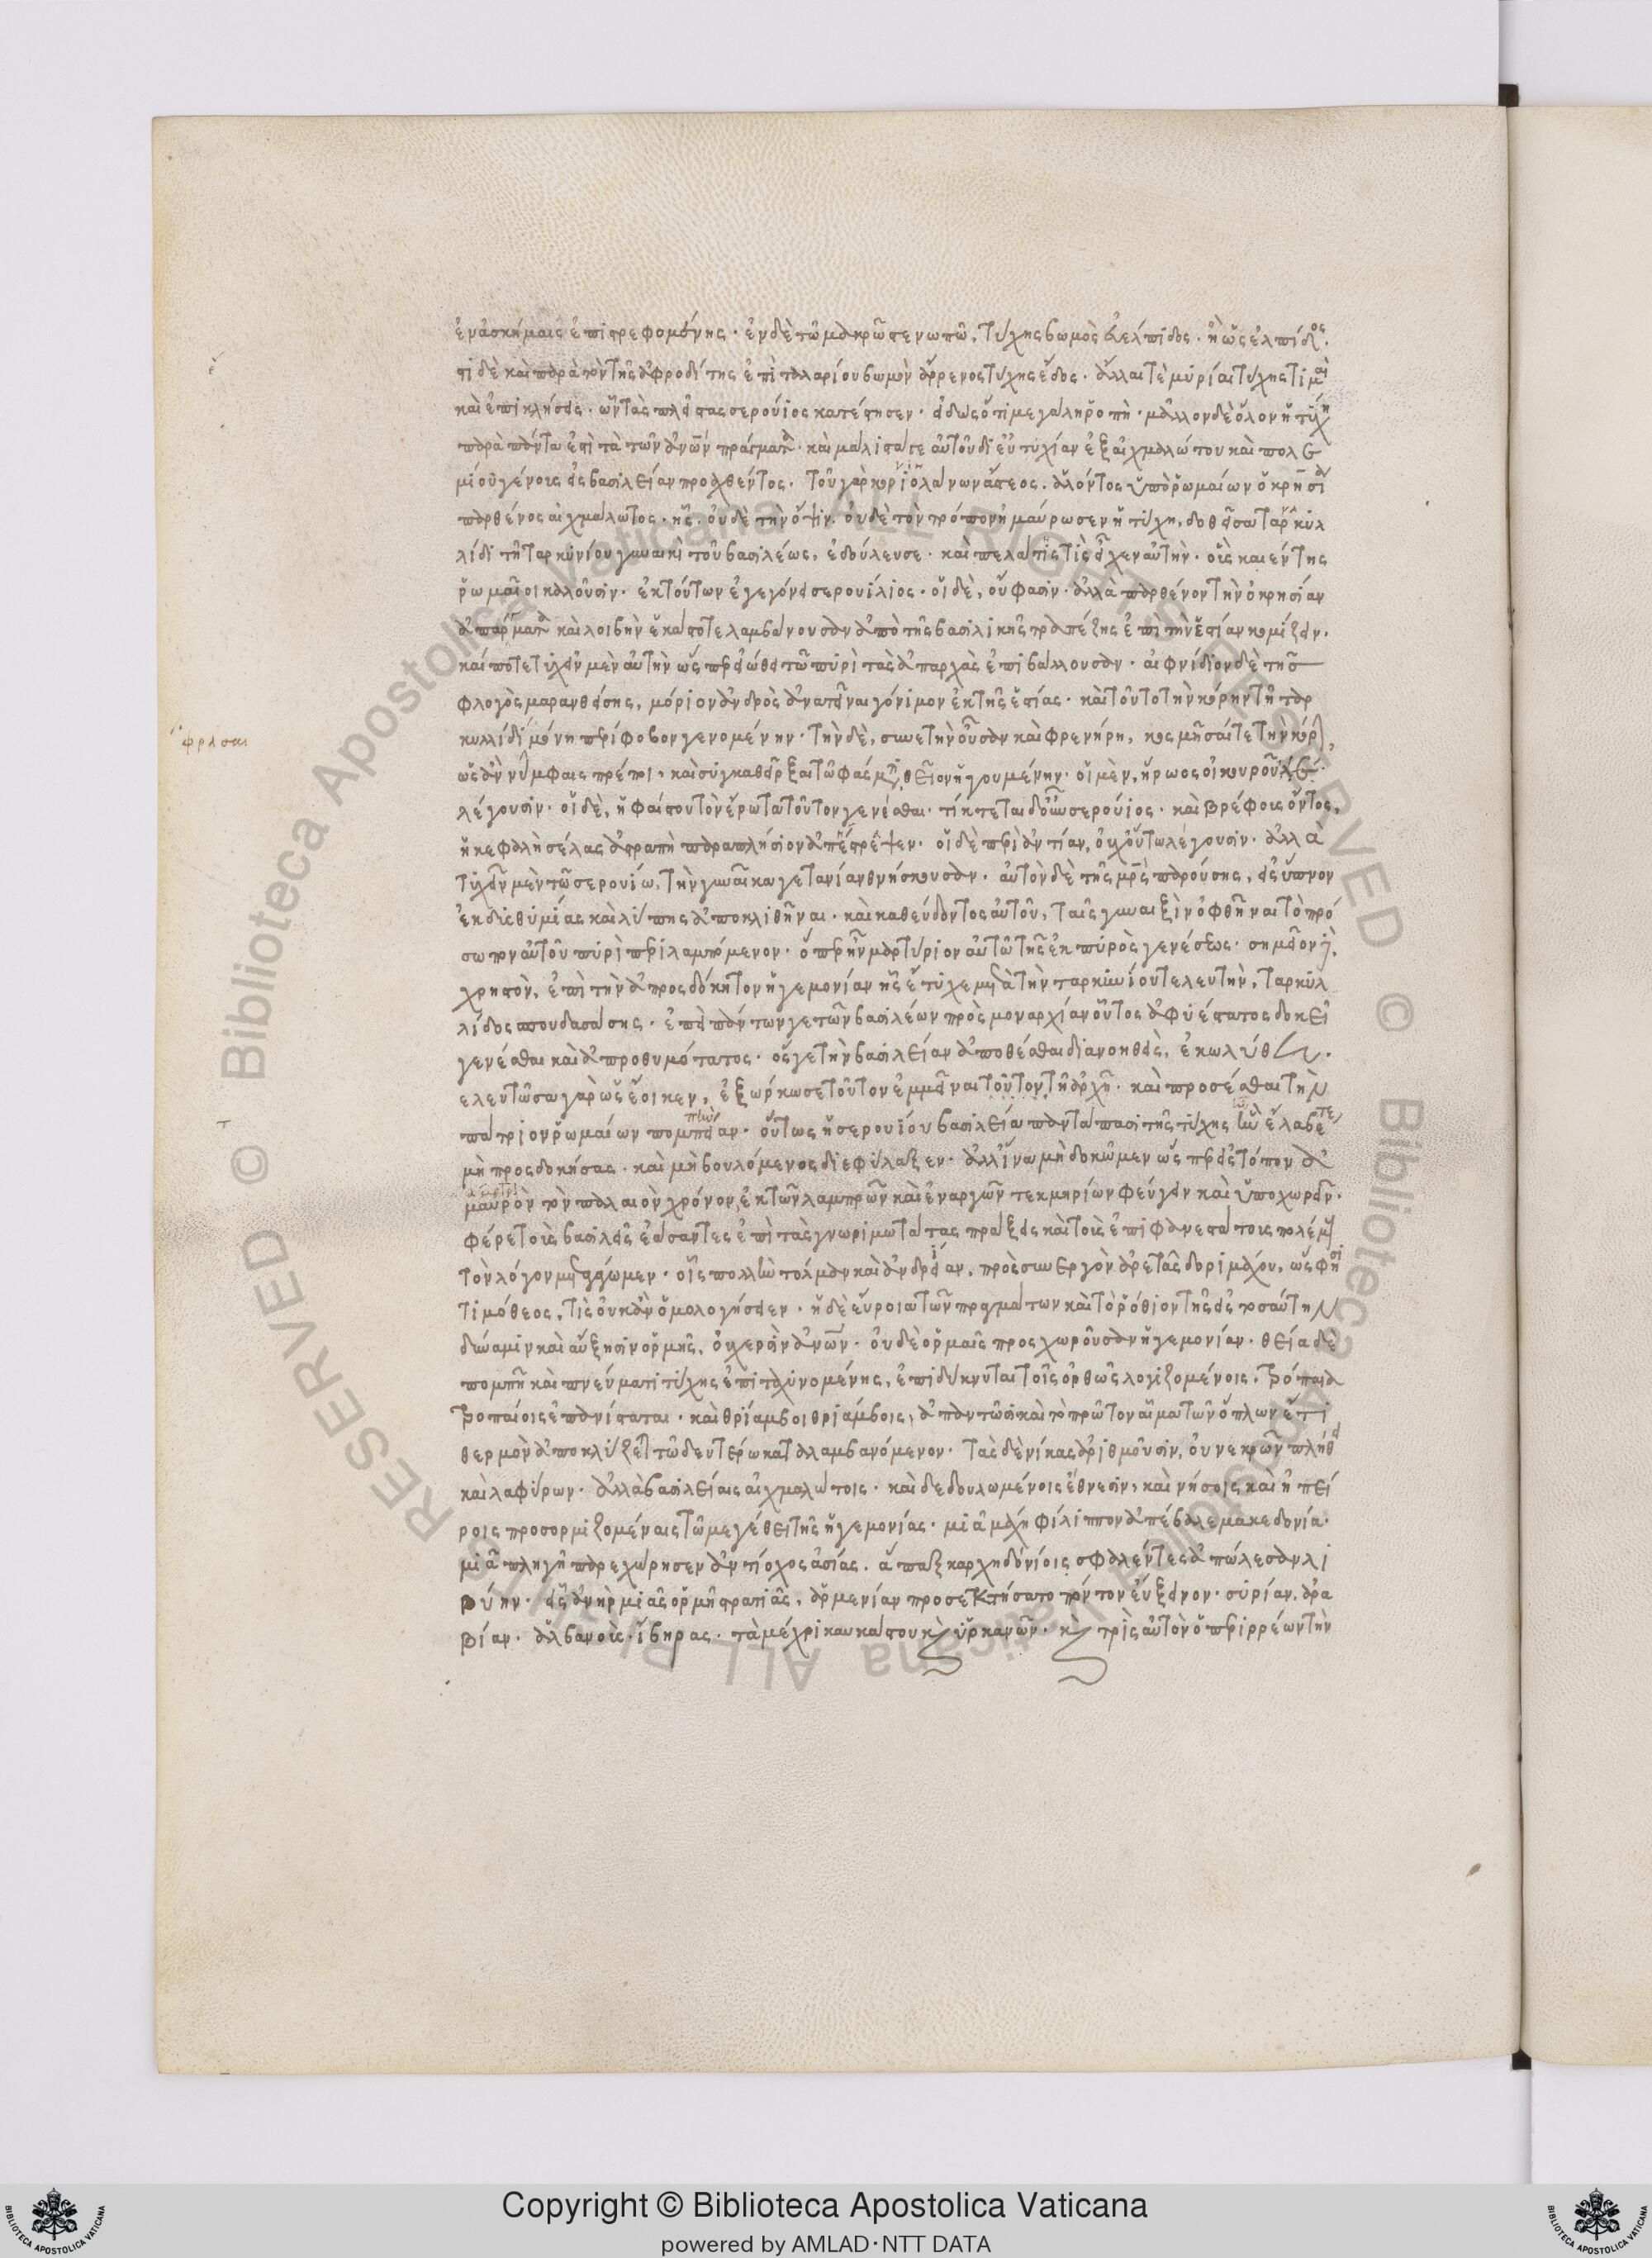 ἐν ἀσκήμαις ἐπιστρεφομένης · ἐν δὲ τῷ μακρῷ στενωπῷ, τύχης βωμὸς εὐέλπιδος · ἢ ὡς ἐλπίδος ·
τι δὲ καὶ παρὰ τὸν τῆς ἀφροδίτης ἐπιταλαρίου βωμὸν ἄρρενος τύχης ἕδος · ἄλλαι τὲ μυρίαι τύχης τιμαὶ
καὶ ἐπικλήσεις · ὧν τὰς πλείστας σερούϊος κατέστησεν · εἰδὼς ὅτι μεγάλη ῥοπὴ · μᾶλλον δὲ ὅλον ἡ τύχη
παρὰ πάντα ἐστὶ τὰ τῶν ἀνων πράγματα · καὶ μάλιστά γε αὐτοῦ δι εὐτυχίαν ἐξ αἰχμαλώτου καὶ πολε
μίου γένους εἰς βασιλείαν προαχθέντος · τοῦ γὰρ κοριολάνων ἄστεος ἁλόντος ὑπὸ ῥωμαίων ὀκρησία
παρθένος αἰχμάλωτος · ἧς οὐδὲ τὴν ὄψιν οὐδὲ τὸν τρόπον ἠμαύρωσεν ἡ τύχη, δοθεῖσα ταρκυλ
λίδι τῇ ταρκυνίου γυναικὶ τοῦ βασιλέως, ἐδούλευσε · καὶ πελάτις τις εἶχεν αὐτὴν · οὓς κλιέντης
ῥωμαῖοι καλοῦσιν · ἐκ τούτων ἐγεγόνει σερουίλιος · οἱ δὲ, οὔ φασιν · ἀλλὰ παρθένον τὴν ὀκρησίαν
ἀπάργματα καὶ λοιβὴν ἑκάστοτε λαμβάνουσαν ἀπὸ τῆς βασιλικῆς τραπέζης ἐπὶ τὴν ἑστίαν κομίζειν ·
καί ποτε τυχεῖν μὲν αὐτὴν ὥσπερ εἰώθει τῷ πυρὶ τὰς ἀπαρχὰς ἐπιβάλλουσαν · αἰφνίδιον δὲ τῆς
φλογὸς μαρανθείσης, μόριον ἀνδρὸς ἀνατεῖναι γόνιμον ἐκ τῆς ἑστίας · καὶ τοῦτο τὴν κόρην τῇ ταρ
κυλλίδι μόνη περίφοβον γενομένην · τὴν δὲ, συνετὴν οὖσαν καὶ φρενήρη, κοσμῆσαί τε τὴν κόρην,
ὡς ἂν νύμφαις πρέποι, καὶ συγκαθεῖρξαι τῷ φάσματι, θεῖον ἡγουμένην · οἱ μὲν, ἥρωος οἰκουροῦ
λέγουσιν · οἱ δὲ, ἡφαίστου τὸν ἔρωτα τοῦτον γενέσθαι · τίκτεται δ' οὖν σερούϊος · καὶ βρέφους ὄντος,
ἡ κεφαλὴ σέλας ἀστραπῇ παραπλήσιον ἀπέστρεψεν · οἱ δὲ περὶ ἀντίαν, οὐχ οὕτω λέγουσιν · ἀλλὰ
τυχεῖν μὲν τῷ σερουίω, τὴν γυναῖκα γετανίαν θνήσκουσαν · αὐτὸν δὲ τῆς μρς παρούσης, εἰς ὕπνον
ἐκ δυσθυμίας καὶ λύπης ἀποκλιθῆναι · καὶ καθεύδοντος αὐτοῦ, ταῖς γυναιξὶν ὀφθῆναι τὸ πρό
σωπον αὐτοῦ πυρὶ περιλαμπόμενον · ὅπερ ἦν μαρτύριον αὐτῷ τῆς ἐκ πυρὸς γενέσεως · σημεῖον δὲ
χρηστὸν, ἐπὶ τὴν ἀπροσδόκητον ἡγεμονίαν ἧς ἔτυχε μετὰ τὴν ταρκυνίου τελευτὴν, ταρκυλ
λίδος σπουδασάσης · ἐπεὶ πάντων γε τῶν βασιλέων πρὸς μοναρχίαν οὗτος ἀφυέστατος δοκεῖ
γενέσθαι καὶ ἀπροθυμότατος · ὅς γε τὴν βασιλείαν ἀποθέσθαι διανοηθεὶς, ἐκωλύθη ·
ελευτῶσα γὰρ ὡς ἔοικεν, ἐξώρκωσε τοῦτον ἐμμεῖναι τοῦτον τῇ ἀρχῇ · καὶ προσέσθαι τὴν
πάτριον ῥωμαίων πομπείαν · οὕτως ἡ σερουίου βασιλεία παντάπασι τῆς τύχης ἣν ἔλαβε τε
μὴ προσδοκήσας · καὶ μὴ βουλόμενος διεφύλαξεν · ἀλλ ἵνα μὴ δοκῶμεν ὥσπερ εἰς τόπον ἀ
μαυρὸν τὸν παλαιὸν χρόνον ἐκ τῶν λαμπρῶν καὶ ἐναργῶν τεκμηρίων φεύγειν καὶ ὑποχωρεῖν ·
φέρε τοὺς βασιλεῖς ἐάσαντες ἐπὶ τὰς γνωριμωτάτας πράξεις καὶ τοὺς ἐπιφανεστάτους πολέμους
τὸν λόγον μεταγάγωμεν · οἷς πολλὴν τόλμαν καὶ ἀνδρείαν, πρὸς συνεργὸν ἀρετᾶς δοριμάχου, ὥς φησι
τιμόθεος, τίς οὐκ ἂν ὁμολογήσειεν · ἡ δὲ εὔροια τῶν πραγμάτων καὶ τὸ ῥόθιον τῆς εἰς τοσαύτην
δύναμιν καὶ αὔξησιν ὁρμῆς, οὐ χερσὶν ἀνων · οὐδὲ ὁρμαῖς προσχωροῦσαν ἡγεμονίαν · θεία δὲ
πομπῇ καὶ πνεύματι τύχης ἐπιταχυνομένης, ἐπιδείκνυται τοῖς ὀρθῶς λογιζομένοις · τρόπαια
τροπαίοις ἐπανίσταται · καὶ θρίαμβοι θριάμβοις, ἀπαντῶσι καὶ τὸ πρῶτον αἷμα τῶν ὅπλων ἔτι
θερμὸν ἀποκλύζεται τῷ δευτέρω καταλαμβανόμενον · τὰς δὲ νίκας ἀριθμοῦσιν, οὐ νεκρῶν πλήθει
καὶ λαφύρων · ἀλλὰ βασιλείαις αἰχμαλώτοις · καὶ δεδουλωμένοις ἔθνεσιν, καὶ νήσοις καὶ ἠπεί
ροις προσοριζομέναις τῷ μεγέθει τῆς ἡγεμονίας · μιᾷ μάχη φίλιππον ἀπέβαλε μακεδονία ·
μιᾷ πληγῇ παρεχώρησεν ἀντίοχος ἀσίας · ἅπαξ καρχηδόνιοις σφαλέντες ἀπώλεσαν λι
βύην · εἷς ἀνὴρ μιᾶς ὁρμῇ στρατιᾶς, ἀρμενίαν προσεκτήσατο πόντον εὔξεινον · συρίαν, ἀρα
βίαν · ἀλβανοὺς · ἴβηρας · τὰ μέχρι καυκάσου καὶ ὑρκανῶν · καὶ τρὶς αὐτὸν ὁ περιρρέων τὴν
φράσαι
Copyright © Biblioteca Apostolica Vaticana
powered by AMLAD·NTT DATA